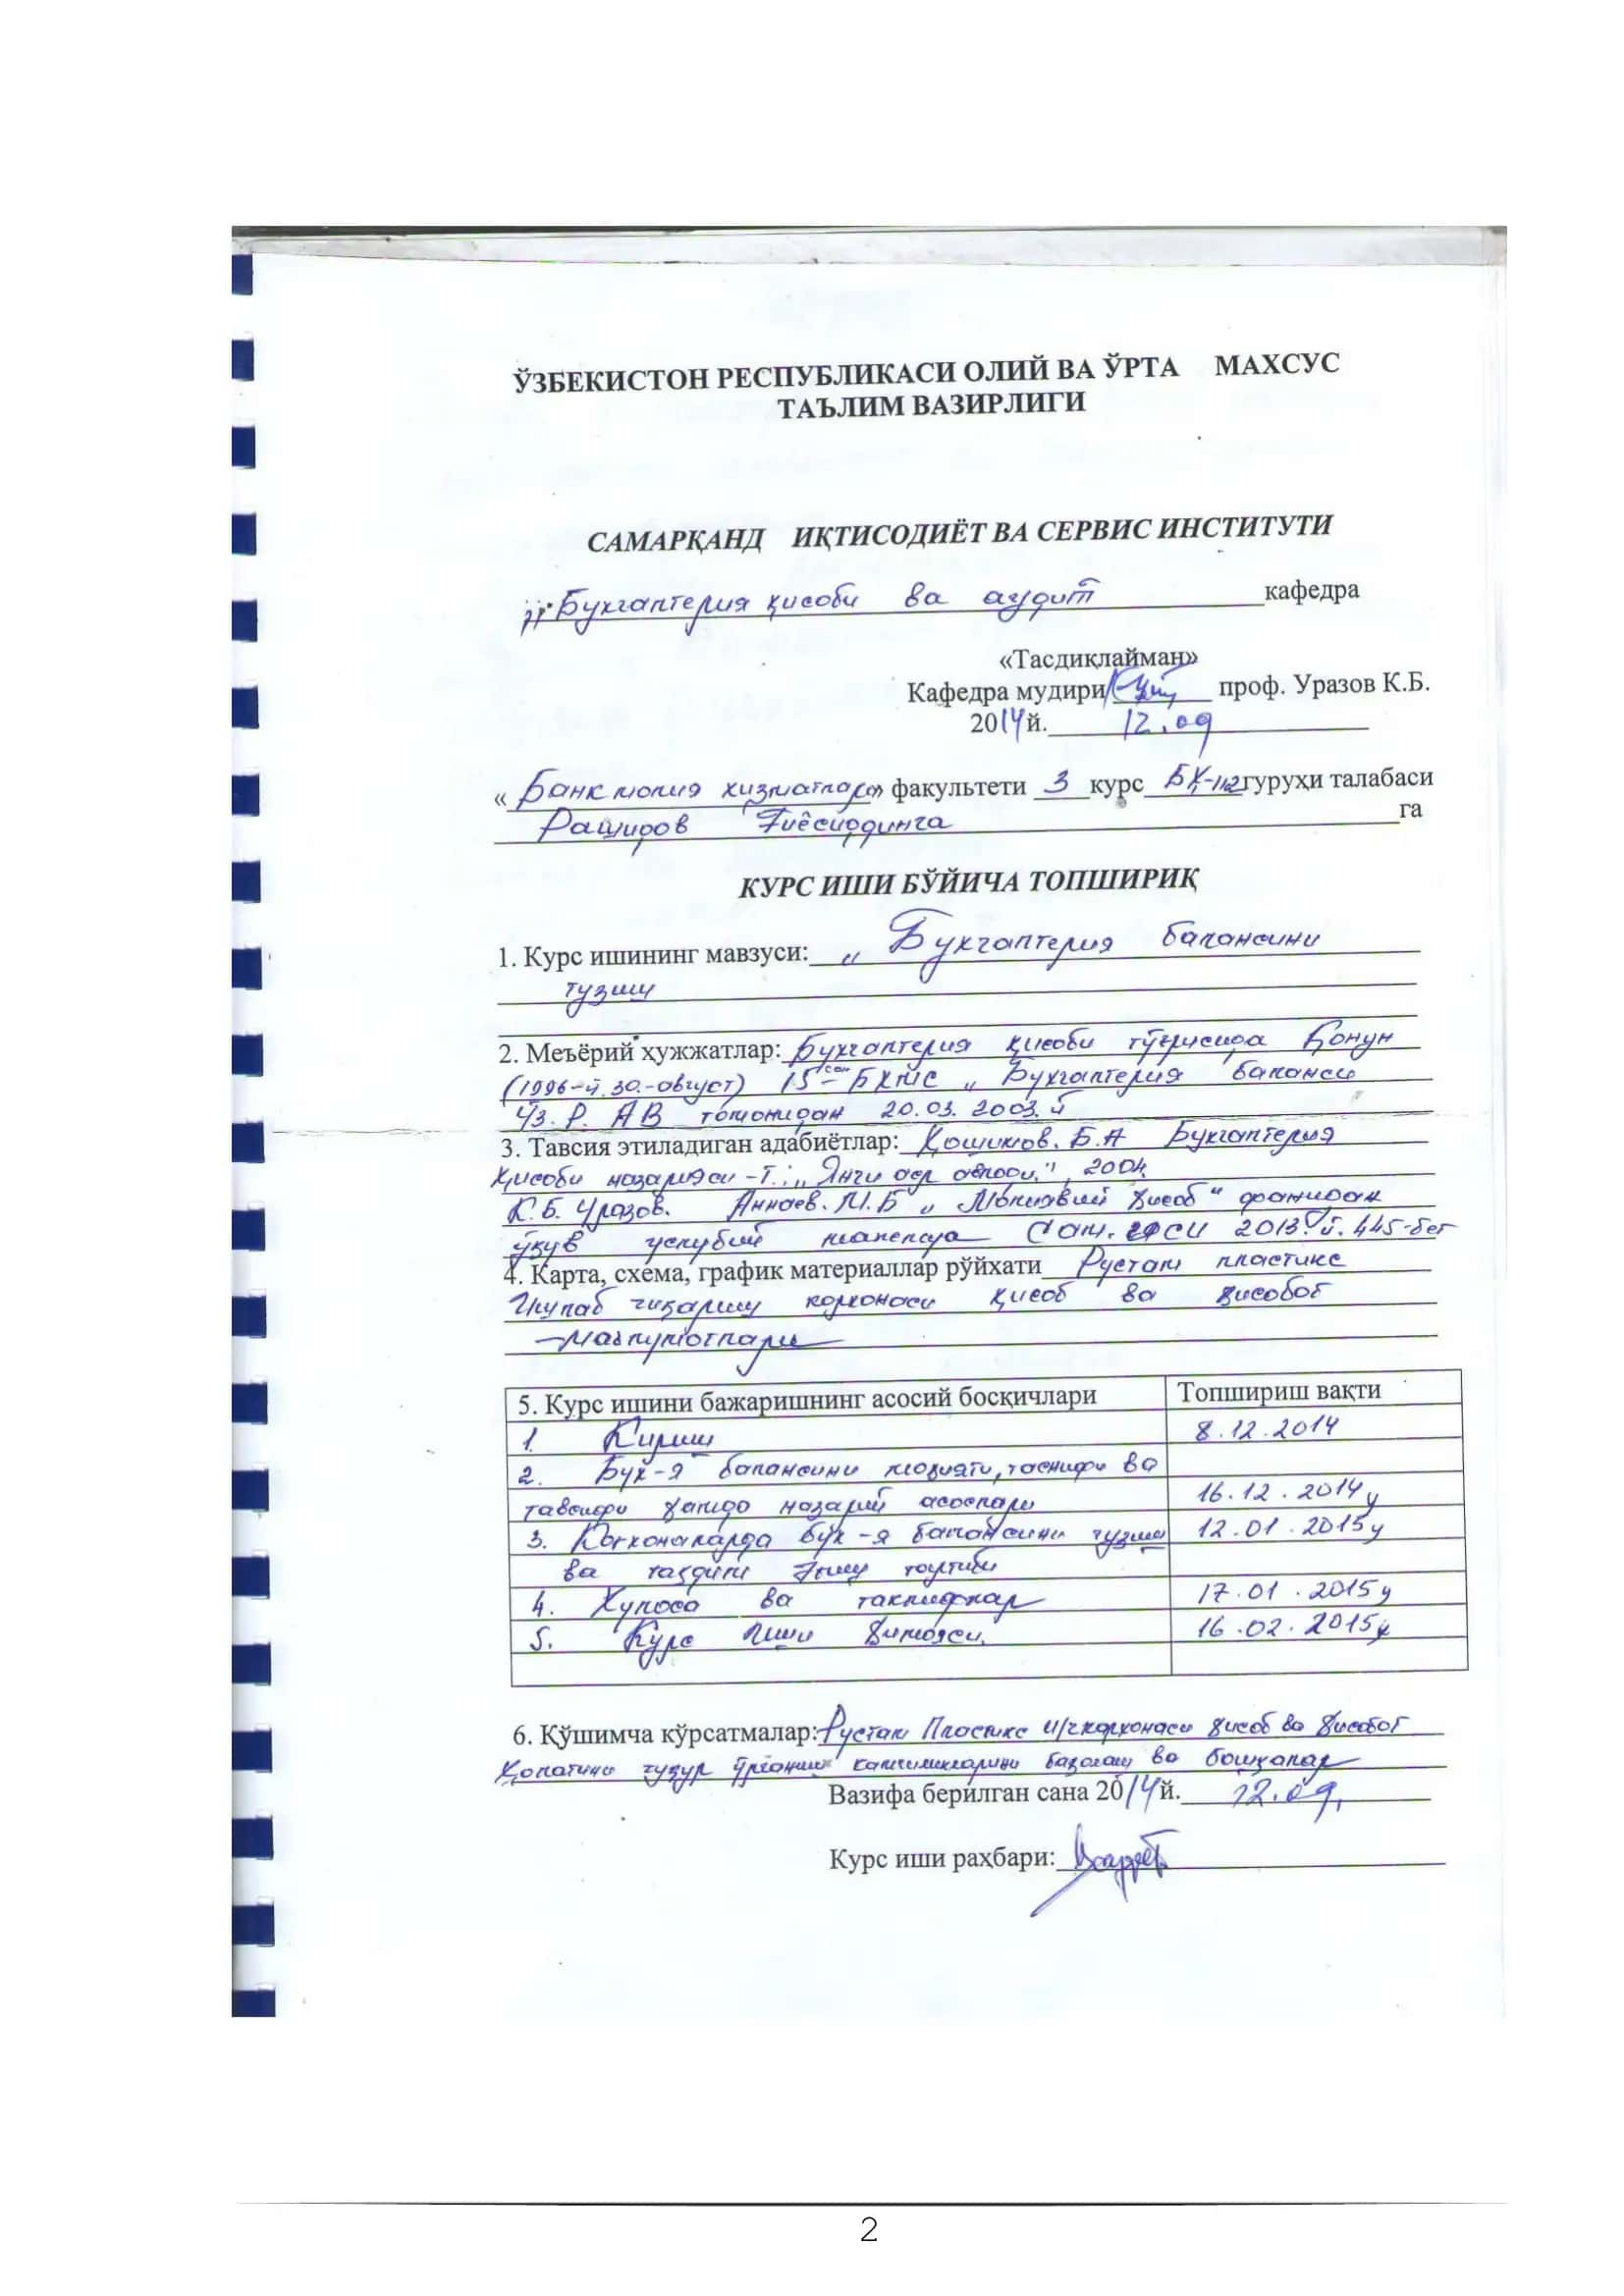 ЎЗБЕКИСТОН РЕСПУБЛИКАСИ ОЛИЙ ВА ЎРТА МАХСУС
ТАЪЛИМ ВАЗИРЛИГИ
САМАРҚАНД ИҚТИСОДИЁТ ВА СЕРВИС ИНСТИТУТИ
„Бухгалтерия ҳисоби ва аудит кафедра
«Тасдиқлайман»
Кафедра мудири проф. Уразов К.Б.
2014й. 12.09
«Банк молия хизматлар» факультети 3 курс БҲ-112 гуруҳи талабаси
Рашидов Ғиёсиддинга га
КУРС ИШИ БЎЙИЧА ТОПШИРИҚ
1. Курс ишининг мавзуси: „Бухгалтерия балансини
тузиш
2. Меъёрий ҳужжатлар: Бухгалтерия ҳисоби тўғрисида Қонун
(1996-й 30-август) 15-сон БХМС „Бухгалтерия баланси
Ўз.Р. АВ томонидан 20.03.2003.й
3. Тавсия этиладиган адабиётлар: Ҳошимов.Б.А Бухгалтерия
ҳисоби назарияси -Т.:„Янги аср авлоди", 2004.
К.Б.Уразов. Аннаев.М.Б „Молиявий ҳисоб" фанидан
ўқув услубий мажмуа Сам.ИСИ 2013.й.445-бет
4. Карта, схема, график материаллар рўйхати Рустам пластикс
Ишлаб чиқариш корхонаси ҳисоб ва ҳисобот
маълумотлари
5. Курс ишини бажаришнинг асосий босқичлари Топшириш вақти
1. Кириш 8.12.2014
2. Бух-я балансини моҳияти, таснифи ва
тавсифи ҳамда назарий асослари 16.12.2014й
3. Корхоналарда бух-я балансини тузиш 12.01.2015й
ва тақдим этиш тартиби
4. Хулоса ва таклифлар 17.01.2015й
5. Курс иши ҳимояси. 16.02.2015й
6. Қўшимча кўрсатмалар: Рустам Пластикс И/ч корхонаси ҳисоб ва ҳисобот
ҳолатини чуқур ўрганиш камчиликларини баҳолаш ва бошқалар
Вазифа берилган сана 2014й. 12.09.
Курс иши раҳбари:
2